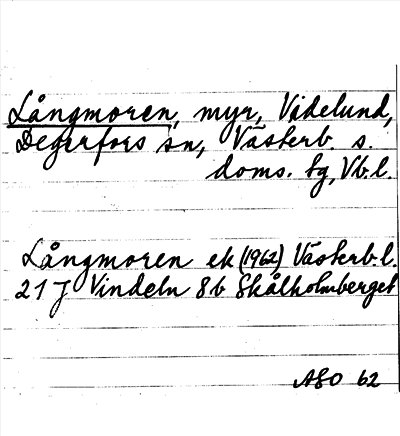 Långmoren, myr, Videlund,
Degerfors sn, Västerb. s.
doms. tg, Vb.l.
Långmoren ek (1962) Västerb.l.
21 J Vindeln 8b Skålholmberget
ASO 62